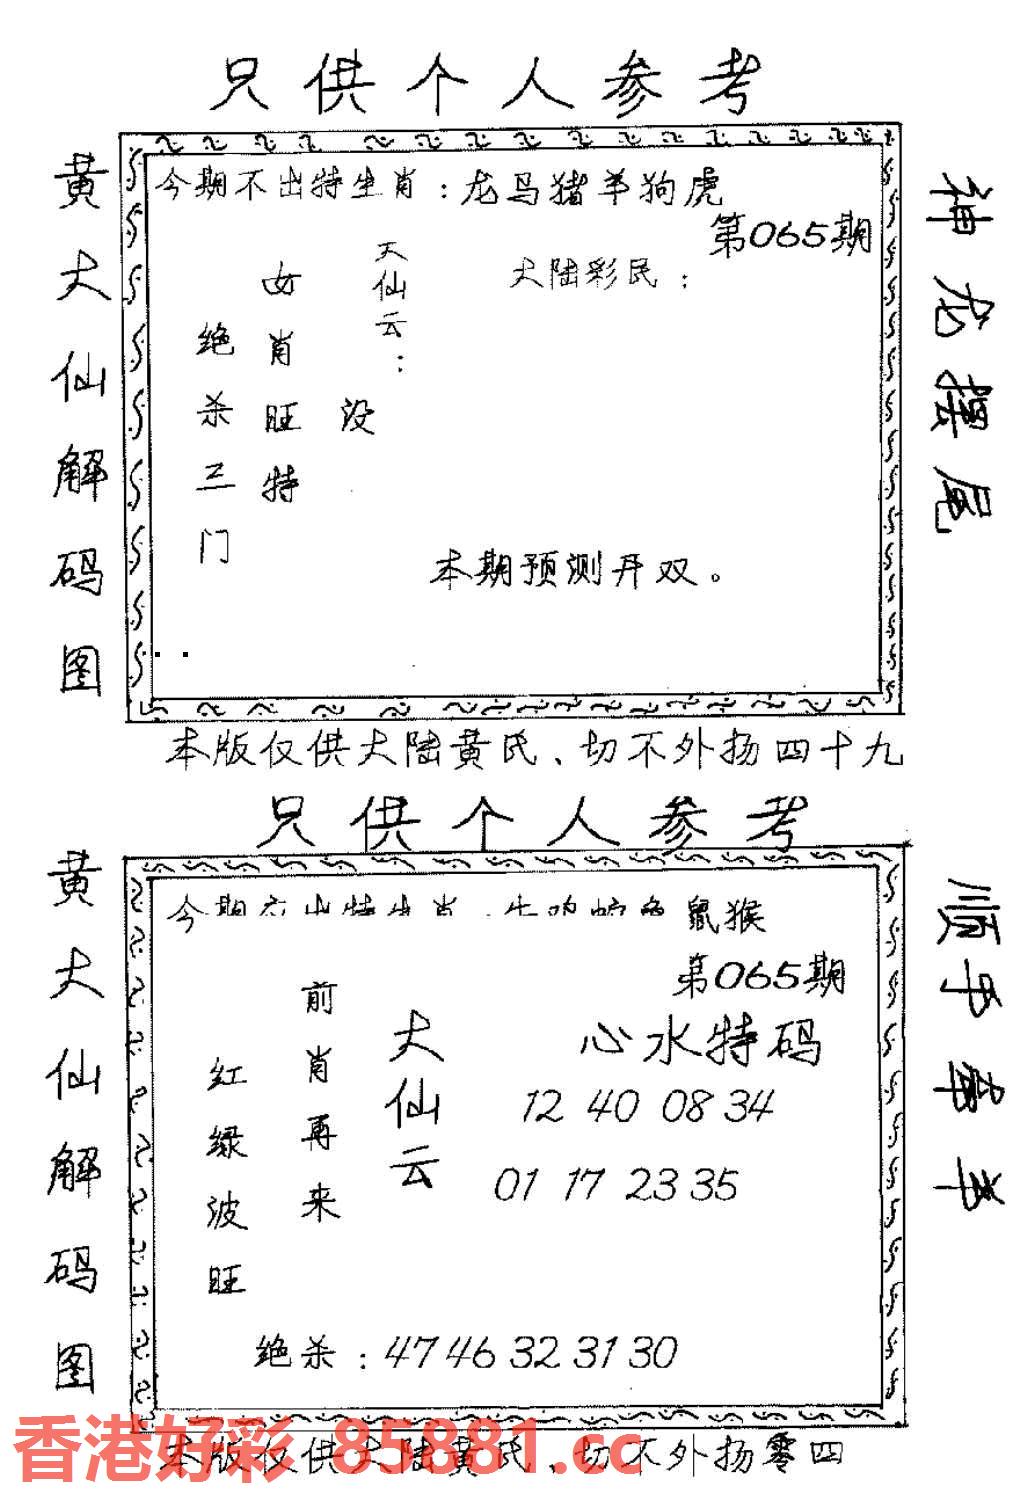 只供个人参考
黄大仙解码图
今期不出特生肖：龙马猪羊狗虎
第065期
大仙云：
大陆彩民：
女肖旺特
没
绝杀三门
本期预测开双。
神龙摆尾
本版仅供大陆黄民、切不外扬四十九
只供个人参考
黄大仙解码图
鼠猴
第065期
大仙云
心水特码
前肖再来
红绿波旺
12 40 08 34
01 17 23 35
绝杀：47 46 32 31 30
顺手牵羊
本版仅供大陆黄民、切不外扬零四
香港好彩 85881.cc